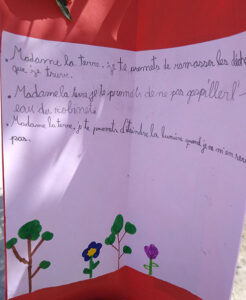 . Madame la terre, je te promets de ramasser les déche
que je trouve.
. Madame la terre je te promets de ne pas gaspiller l'-
eau du robinet.
. Madame la terre, je te promets d'éteindre la lumière quand je ne m'en sers
pas.